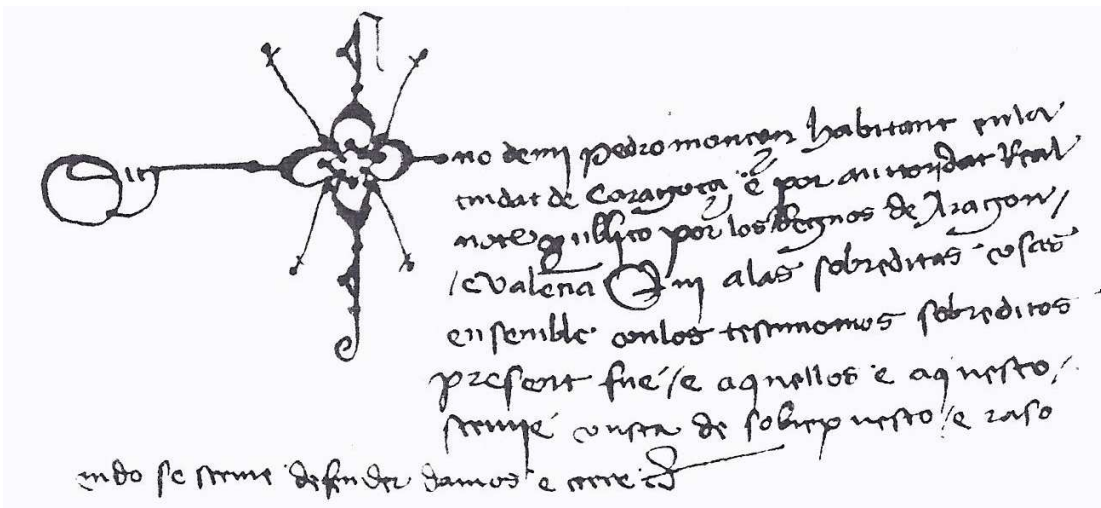 Sig no de mj pedro moncon habitant en la
ciudat de Caragoça e por auctoridat Real
not publico por los Regnos de Aragon /
/ e Valencia Qui a las sobreditas cosas
ensemble con los testimonios sobreditos
present fue / e aquellos e aquesto /
screuie consta de sobrepuesto / e raso
do se screue defender damos e